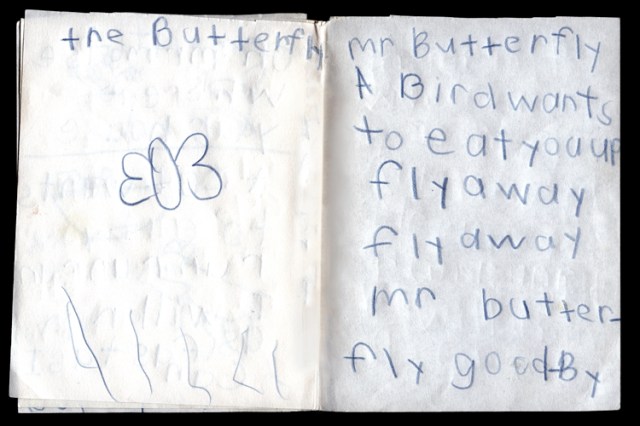 tne Butterfly
mr Butterfly
A Bird wants
to eat youup
fly away
fly away
mr butter-
fly goodBy